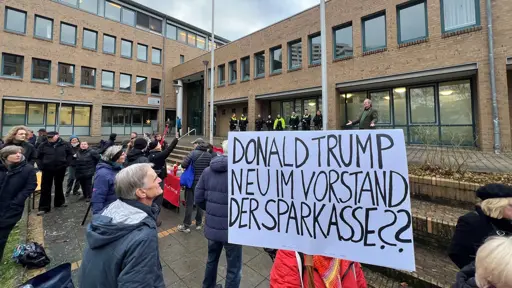 DONALD TRUMP
NEU IM VORSTAND
DER SPARKASSE??